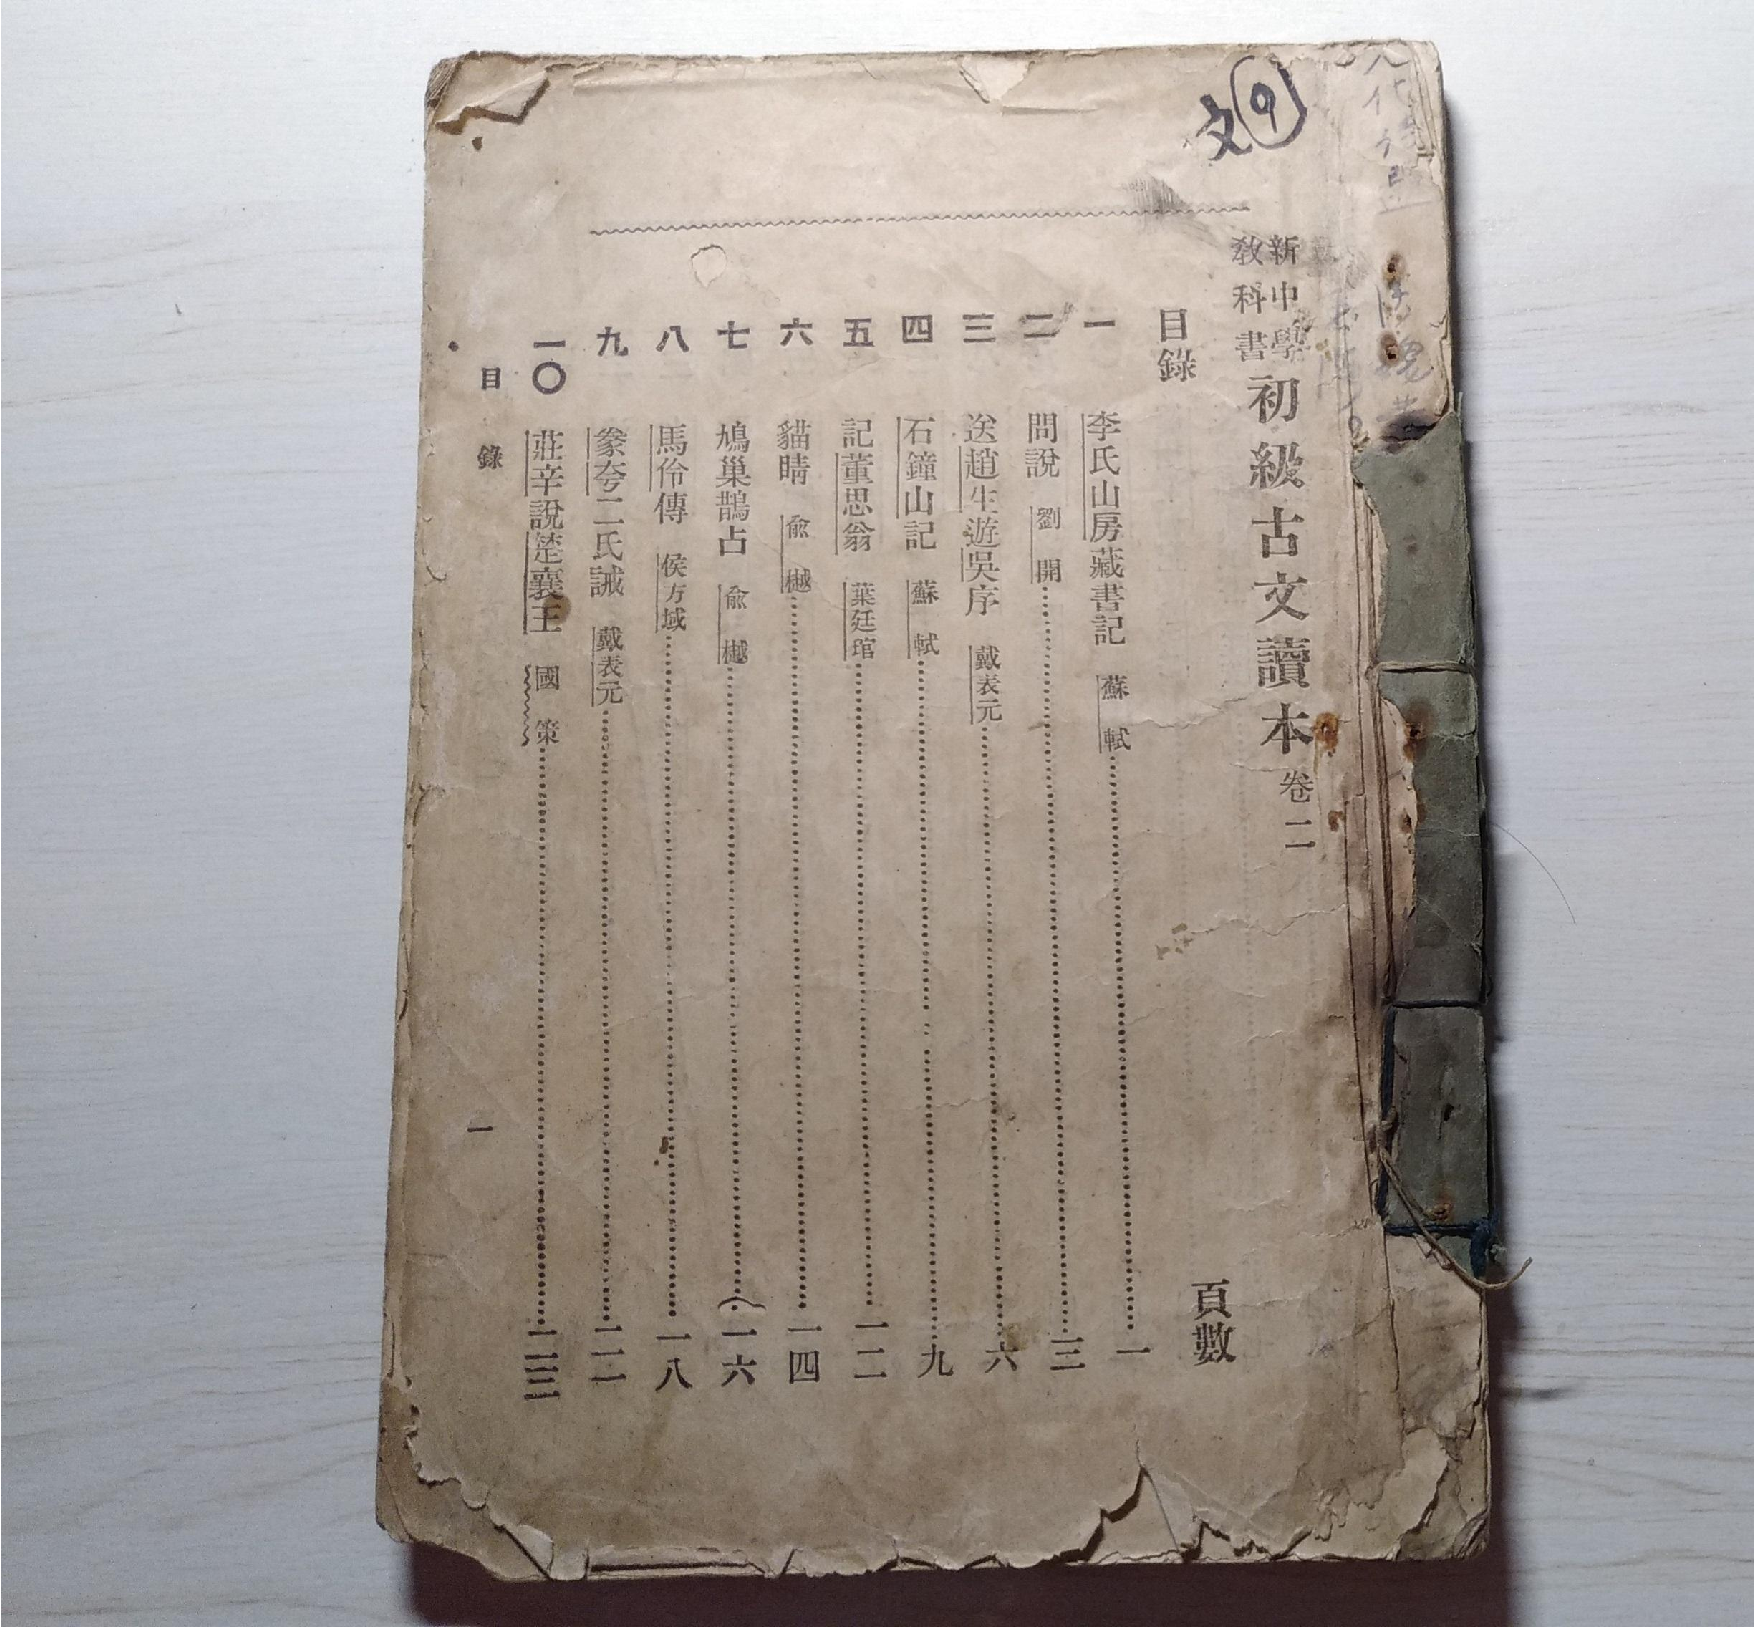 文⑨
新中學
教科書
初級古文讀本 卷二
目錄 頁數
一 李氏山房藏書記 蘇軾 一
二 問說 劉開 三
三 送趙生遊吳序 戴表元 六
四 石鐘山記 蘇軾 九
五 記董思翁 葉廷琯 一二
六 貓睛 俞樾 一四
七 鳩巢鵲占 俞樾 (一六
八 馬伶傳 侯方域 一八
九 豢夸二氏誡 戴表元 二一
一〇 莊辛說楚襄王 國策 二三
目錄 一